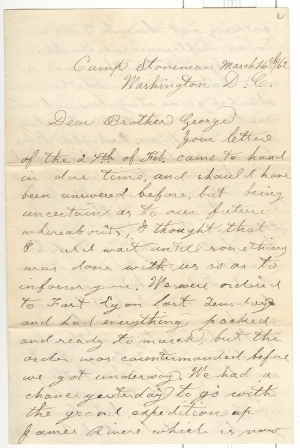 Camp Stoneman March 26th/62
Washington D. C.
Dear Brother George
Your letter
of the 27th of Feb. came to hand
in due time, and should have
been answered before, but being
uncertain as to our future
whereabouts, I thought that
I would wait until something
was done with us so as to
inform you. We were ordered
to Fort Lyon last Tuesday
and had everything packed
and ready to march, but the
order was countermanded before
we got underway. We had a
chance yesterday to go with
the grand expedition up
James River which is now